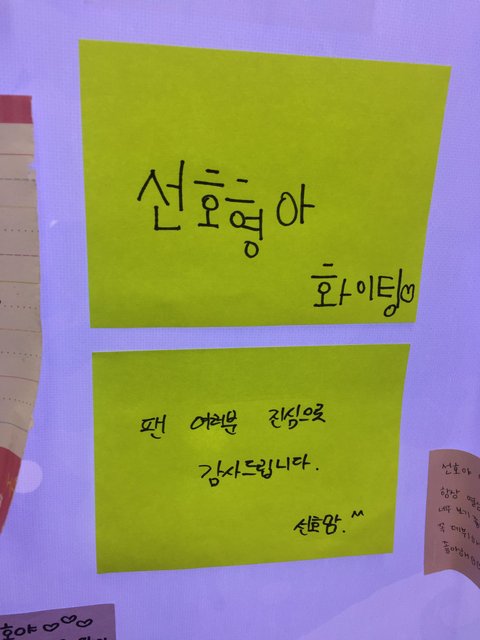 선호형아
화이팅♡
팬 여러분 진심으로
감사드립니다.
선호맘.^^
선호야
항상 열심
호야♡♡♡